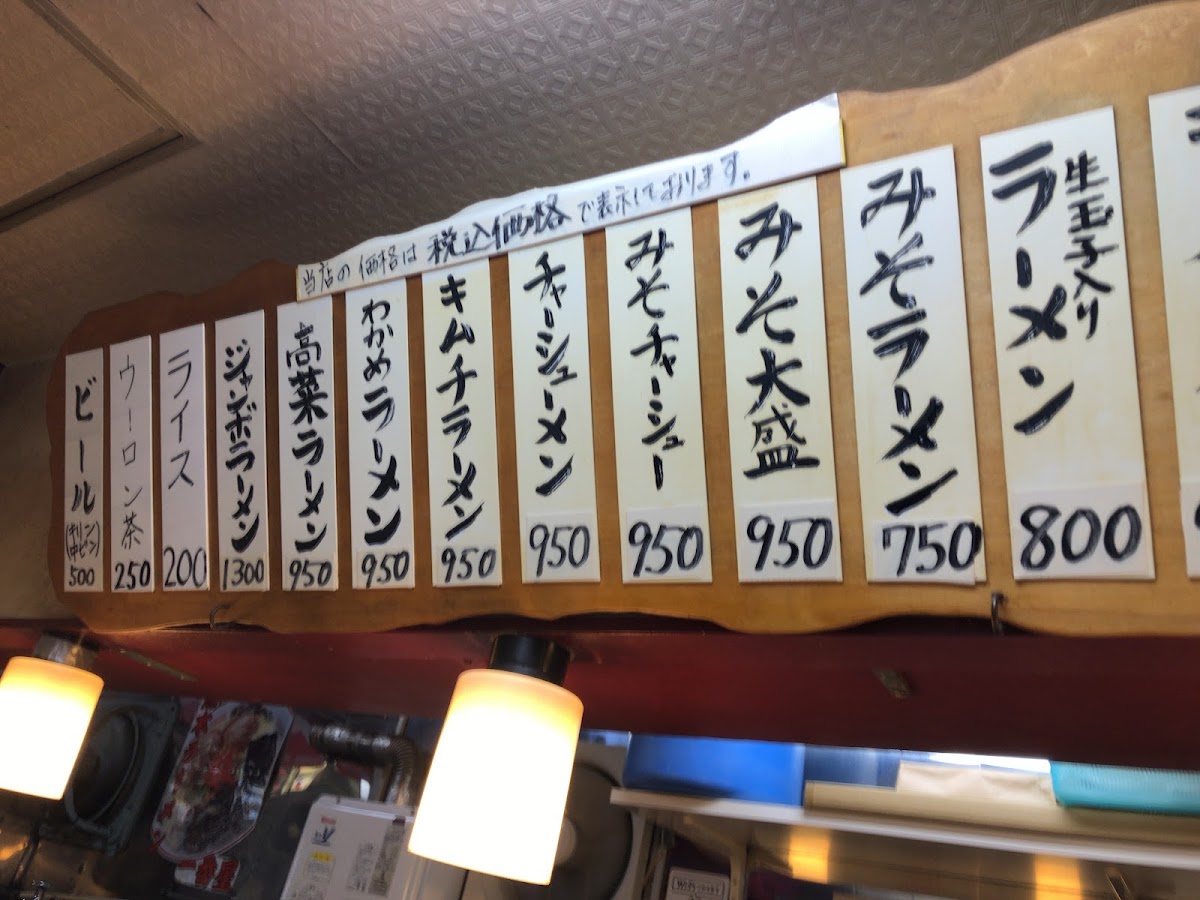 当店の価格は税込価格で表示しております。
生玉子入り
ラーメン
800
みそラーメン
750
みそ大盛
950
みそチャーシュー
950
チャーシューメン
950
キムチラーメン
950
わかめラーメン
950
高菜ラーメン
950
ジャンボラーメン
1300
ライス
200
ウーロン茶
250
ビール
(キリン
中ビン)
500